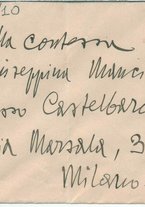 /10
lla contessa
iuseppina Manci
sso Castelbar
ia Marsala, 3
Milano